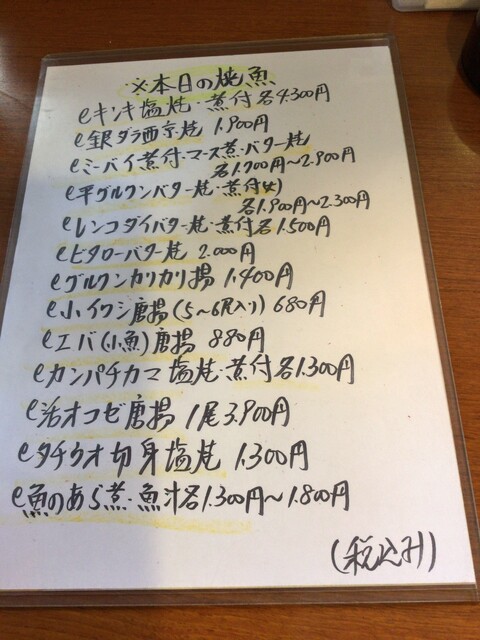 ※本日の焼魚
キンキ塩焼・煮付各4.300円
銀ダラ西京焼 1.900円
ミーバイ煮付・マース煮・バター焼
各1.700円〜2.900円
平グルクンバター焼・煮付
各1.900〜2.300円
レンコダイバター焼・煮付各1.500円
ビタローバター焼 2.000円
グルクンカリカリ揚 1.400円
小イワシ唐揚(5〜6尾入り)680円
エバ(小魚)唐揚 880円
カンパチカマ 塩焼・煮付各1.300円
活オコゼ唐揚 1尾3.900円
タチウオ切身塩焼 1.300円
魚のあら煮・魚汁各1.300円〜1.800円
(税込み)